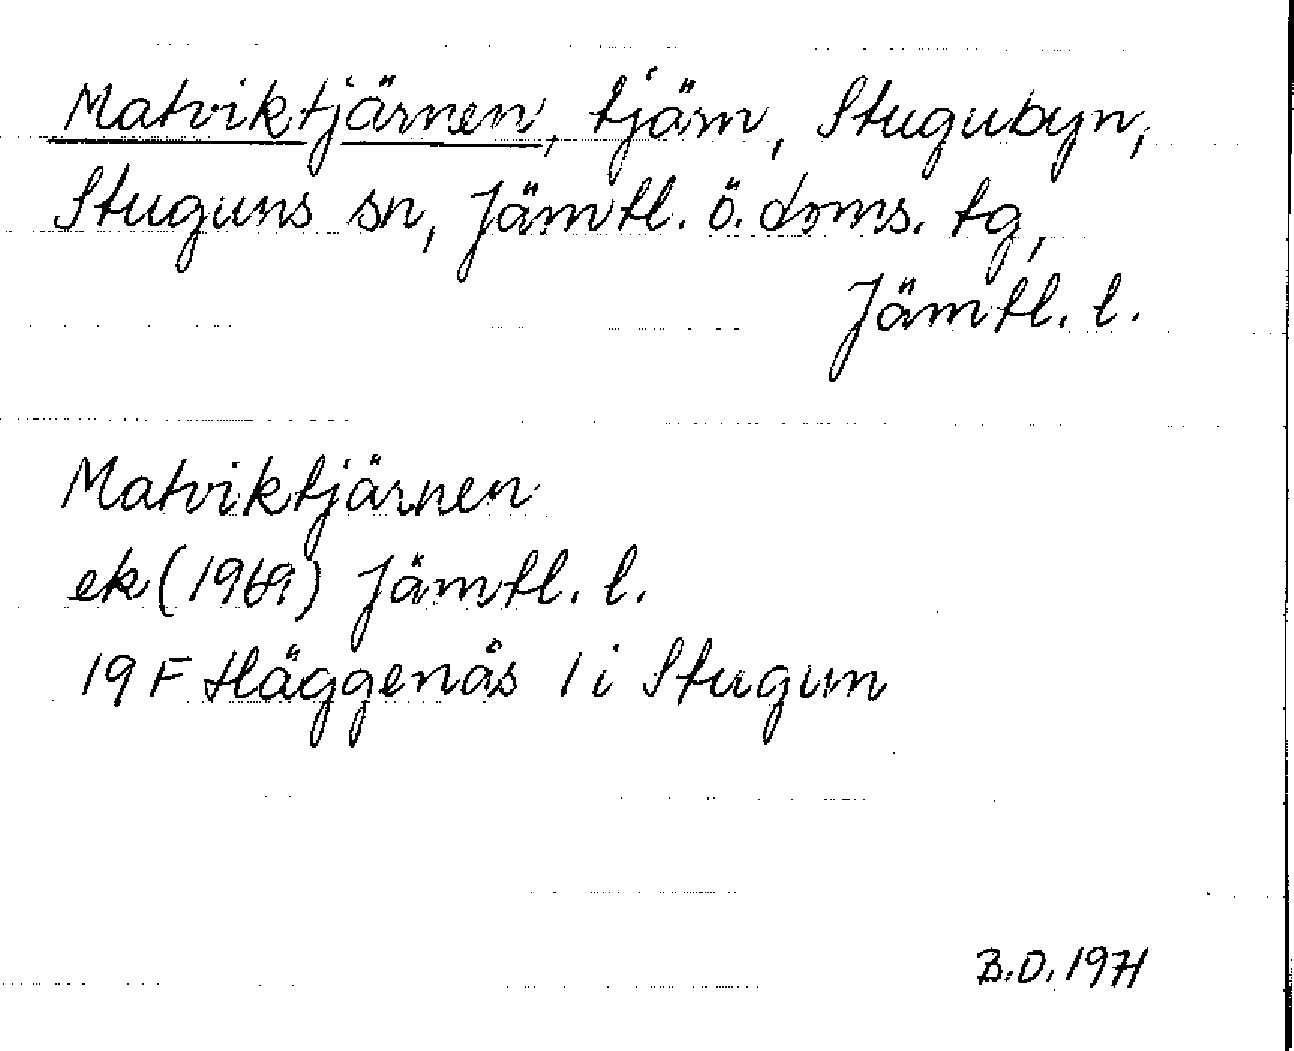 Matviktjärnen, tjärn, Stugubyn,
Stuguns sn, Jämtl. ö. doms. tg,
Jämtl. l.
Matviktjärnen
ek (1969) Jämtl. l.
19 F Häggenås 1 i Stugun
B.O. 1971